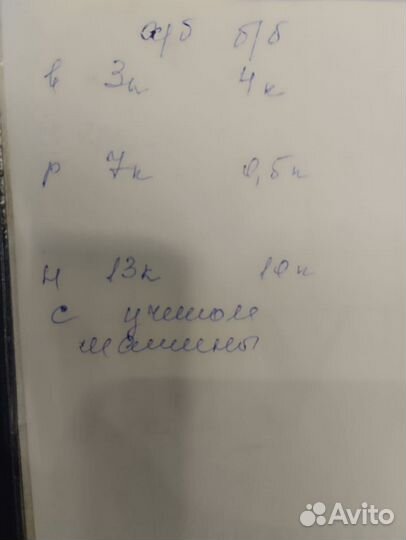 х/б б/б
в 3к 4к
р 7к 0,5к
н 13к 10к
с учетом
машины
Avito